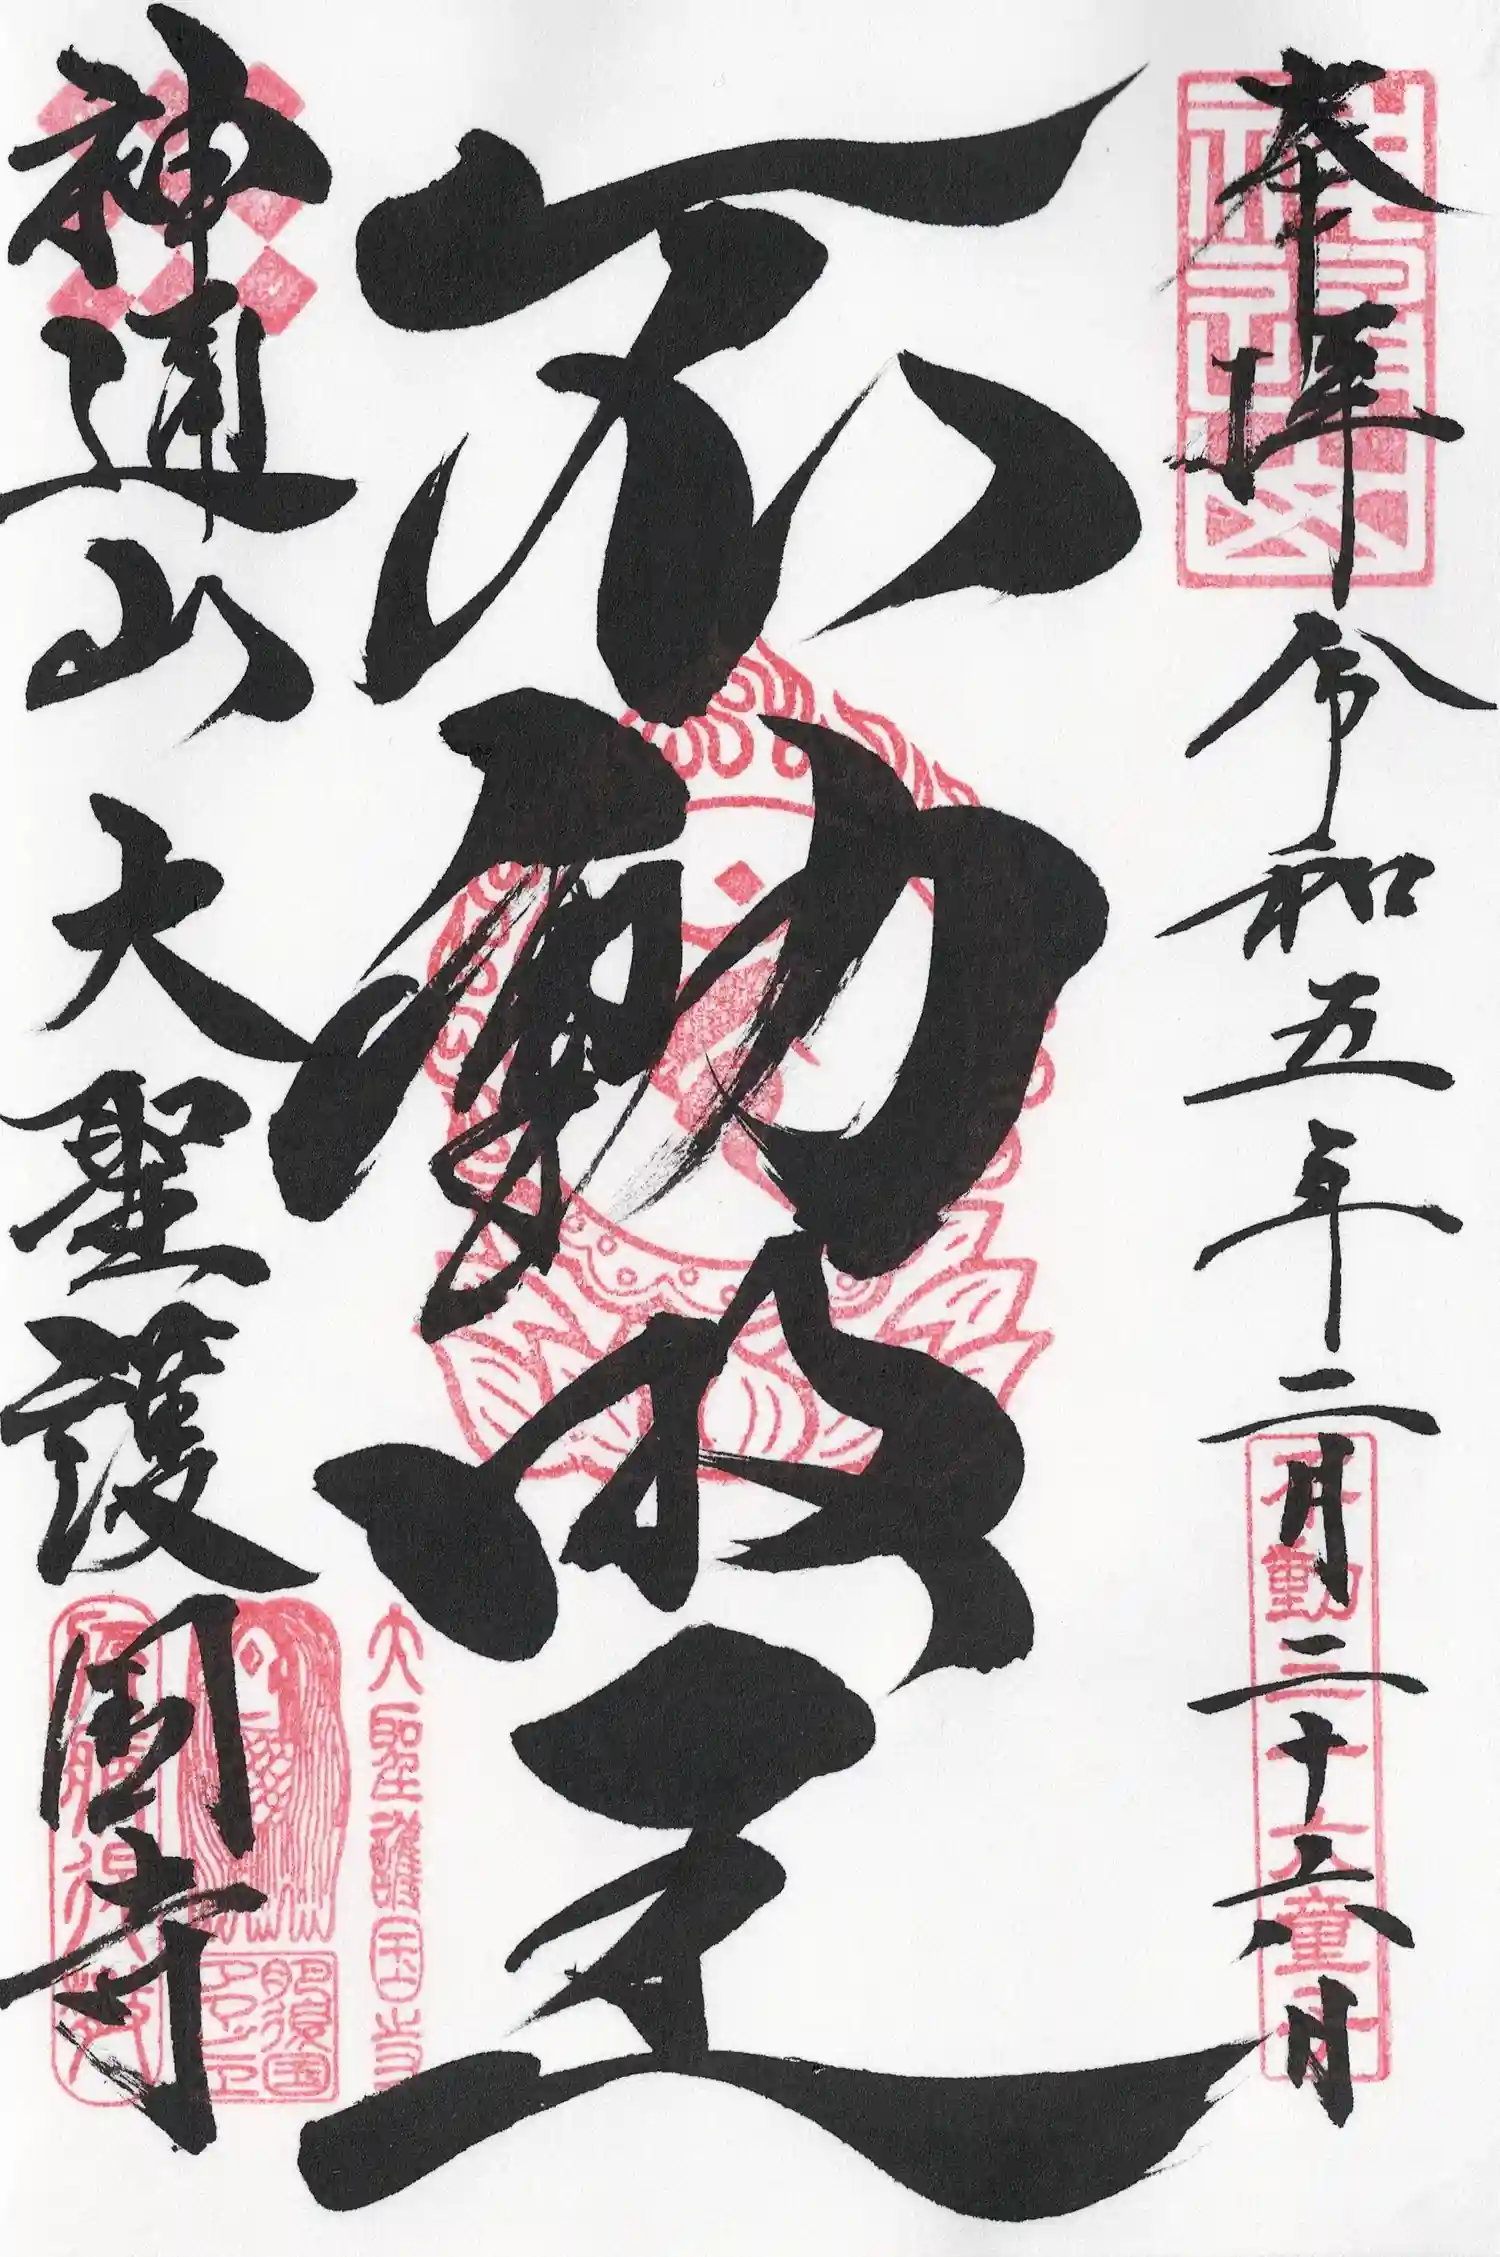 奉拝
令和五年二月二十六日
不動明王
神通山
大聖護国寺
不動三十六童子
大聖護国寺